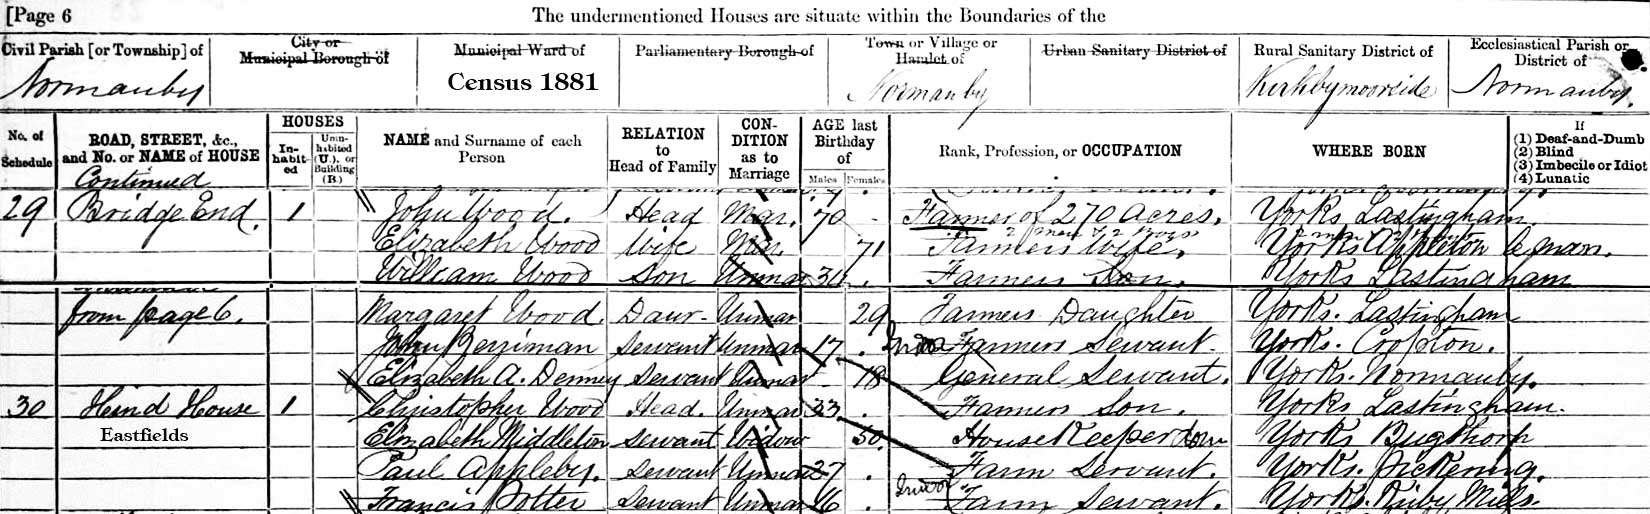 [Page 6 The undermentioned Houses are situate within the Boundaries of the
Civil Parish [or Township] of City or Municipal Borough of Municipal Ward of Parliamentary Borough of Town or Village or Hamlet of Urban Sanitary District of Rural Sanitary District of Ecclesiastical Parish or District of
Normanby Census 1881 Normanby Kirkbymoorside Normanby.
No. of Schedule ROAD, STREET, &c., and No. or NAME of HOUSE HOUSES In-habit-ed Unin-habited (U.), or Building (B.) NAME and Surname of each Person RELATION to Head of Family CON-DITION as to Marriage AGE last Birthday of Males Females Rank, Profession, or OCCUPATION WHERE BORN If (1) Deaf-and-Dumb (2) Blind (3) Imbecile or Idiot (4) Lunatic
Continued
29 Bridge End 1 John Wood. Head Mar. 70 - Farmer of 270 Acres. Yorks Lastingham
2 men & 2 Boys
Elizabeth Wood Wife Mar. 71 Farmers Wife. Yorks Appleton le moan.
William Wood Son Unmar 34 . Farmers Son. Yorks Lastingham
from page 6. Margaret Wood. Daur- Unmar 29 Farmers Daughter Yorks. Lastingham
John Berriman Servant Unmar 17 . Indoor Farmers Servant- Yorks. Cropton.
Elizabeth A. Denney Servant Unmar 18 General Servant. Yorks. Normanby.
30 Hind House 1 Christopher Wood Head. Unmar 33 . Farmers Son. Yorks Lastingham.
Eastfields Elizabeth Middleton Servant Widow 50. House Keeper dom Yorks Bugthorp
Paul Appleby. Servant Unmar 27 . Farm Servant. Yorks. Pickering.
Francis Potter Servant Unmar 16 . Indoor Farm Servant. Yorks. Kirby Mills.